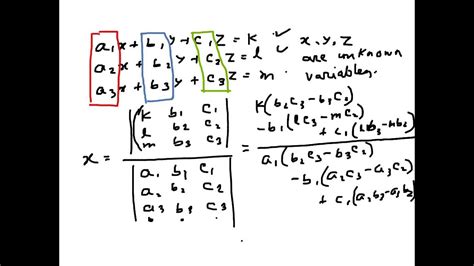 a₁x + b₁y + c₁z = k ✓ x, y, z
a₂x + b₂y + c₂z = l ✓ are unknown
a₃x + b₃y + c₃z = m . variables.
x = | k b₁ c₁ |
| l b₂ c₂ |
| m b₃ c₃ |
| a₁ b₁ c₁ |
| a₂ b₂ c₂ |
| a₃ b₃ c₃ |
= k(b₂c₃ - b₃c₂)
-b₁(lc₃ - mc₂)
+ c₁(lb₃ - mb₂)
a₁(b₂c₃ - b₃c₂)
-b₁(a₂c₃ - a₃c₂)
+ c₁(a₂b₃ - a₃b₂)